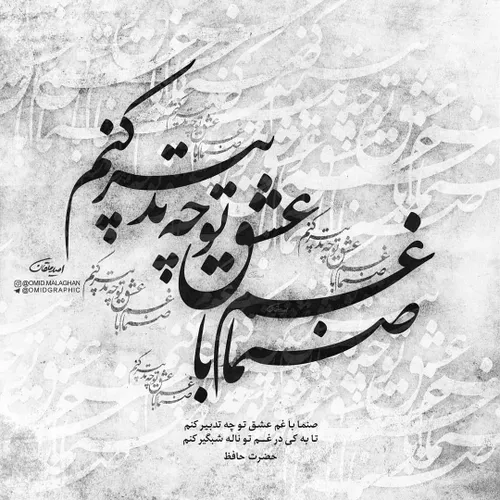 صنما با غم عشق تو چه تدبیر کنم
امید ملاقان
@OMID.MALAGHAN
@OMIDGRAPHIC
صنما با غم عشق تو چه تدبیر کنم
تا به کی در غــم تو ناله شبگیر کنم
حضرت حافظ